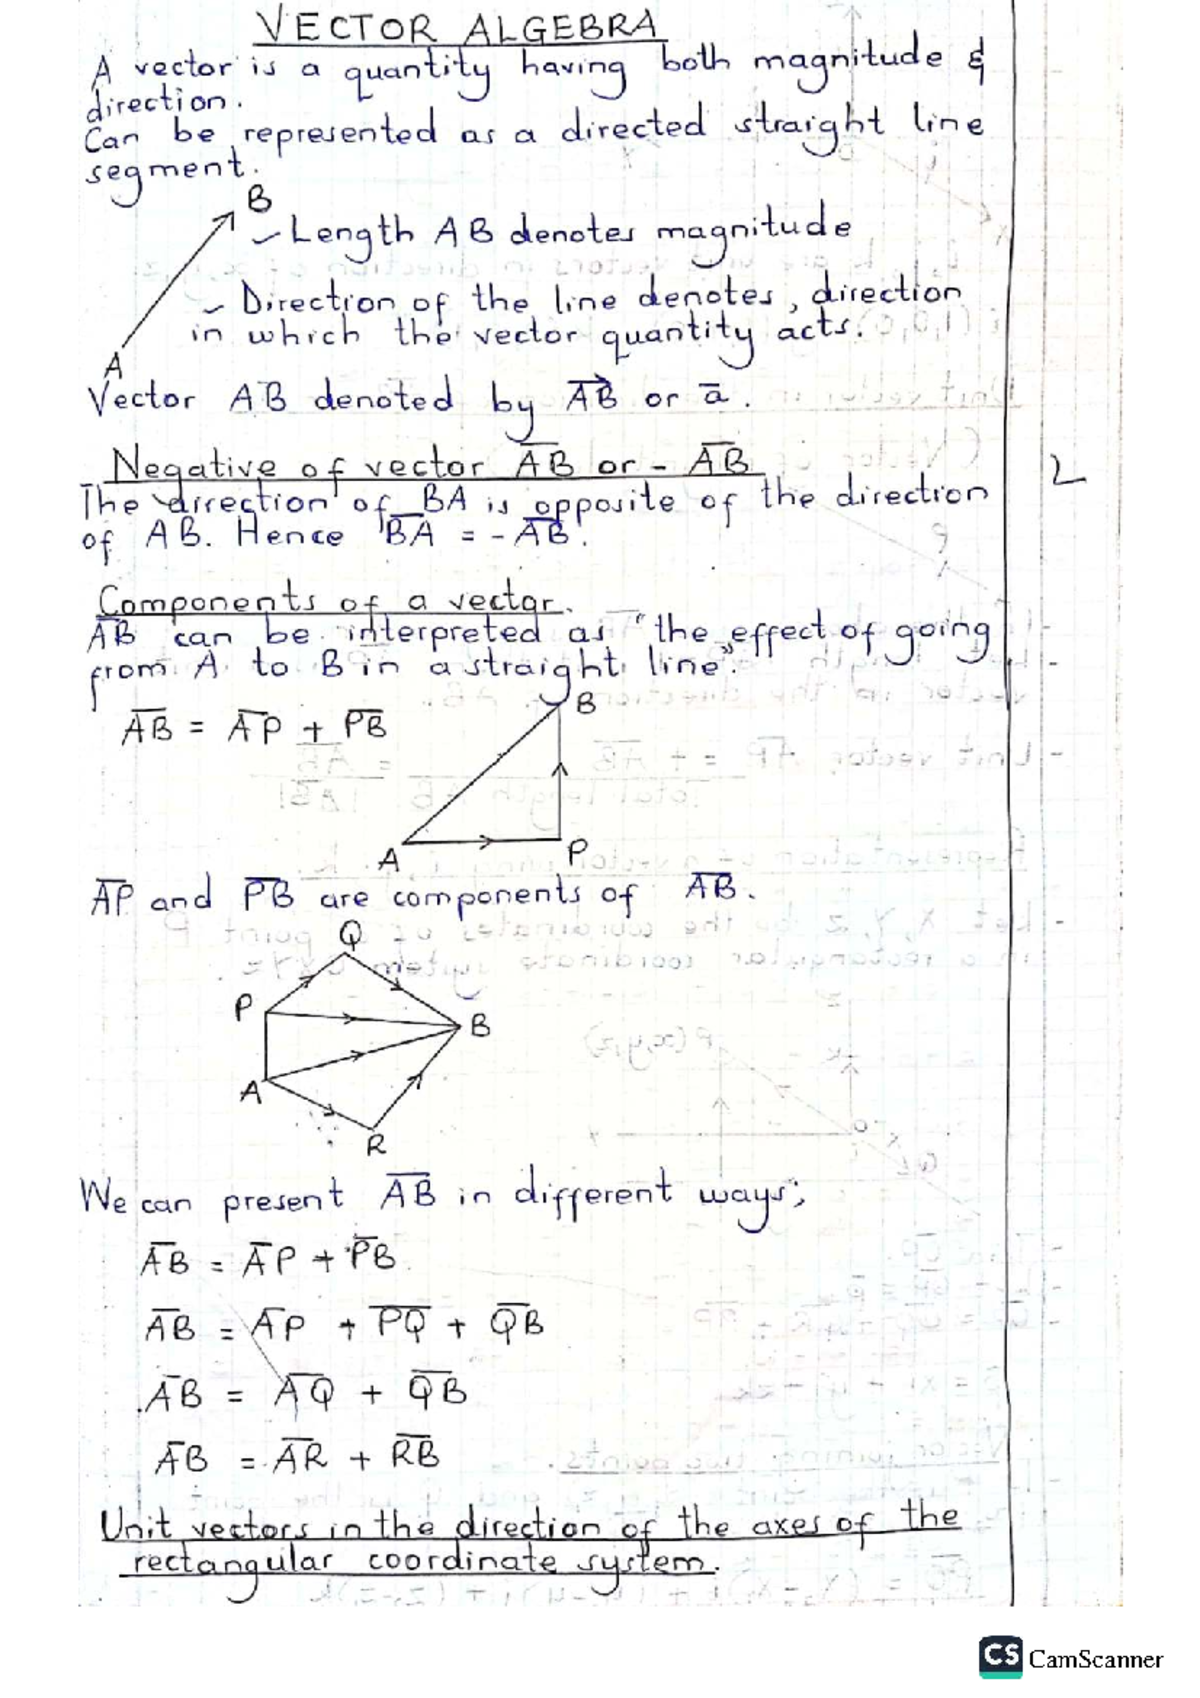 VECTOR ALGEBRA
A vector is a quantity having both magnitude &
direction.
Can be represented as a directed straight line
segment.
B
- Length AB denotes magnitude
- Direction of the line denotes, direction
in which the vector quantity acts.
A
Vector AB denoted by A⃗B⃗ or a̅.
Negative of vector A̅B̅ or - A̅B̅
The direction of BA is opposite of the direction
of AB. Hence B̅A̅ = - A̅B̅.
2
Components of a vector.
A̅B̅ can be interpreted as "the effect of going
from A to B in a straight line".
B
A̅B̅ = A̅P̅ + P̅B̅
A P
A̅P̅ and P̅B̅ are components of A̅B̅.
Q
P
B
A
R
We can present A̅B̅ in different ways;
A̅B̅ = A̅P̅ + P̅B̅
A̅B̅ = A̅P̅ + P̅Q̅ + Q̅B̅
A̅B̅ = A̅Q̅ + Q̅B̅
A̅B̅ = A̅R̅ + R̅B̅
Unit vectors in the direction of the axes of the
rectangular coordinate system.
CS CamScanner